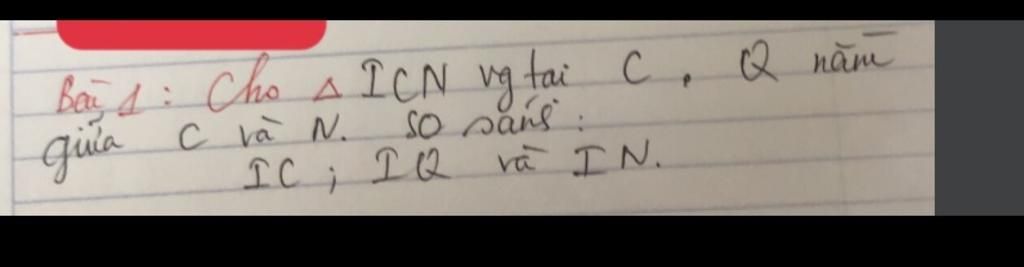 Bài 1: Cho Δ ICN vg tai C, Q nằm
giữa C và N. SO sánh:
IC; IQ và IN.